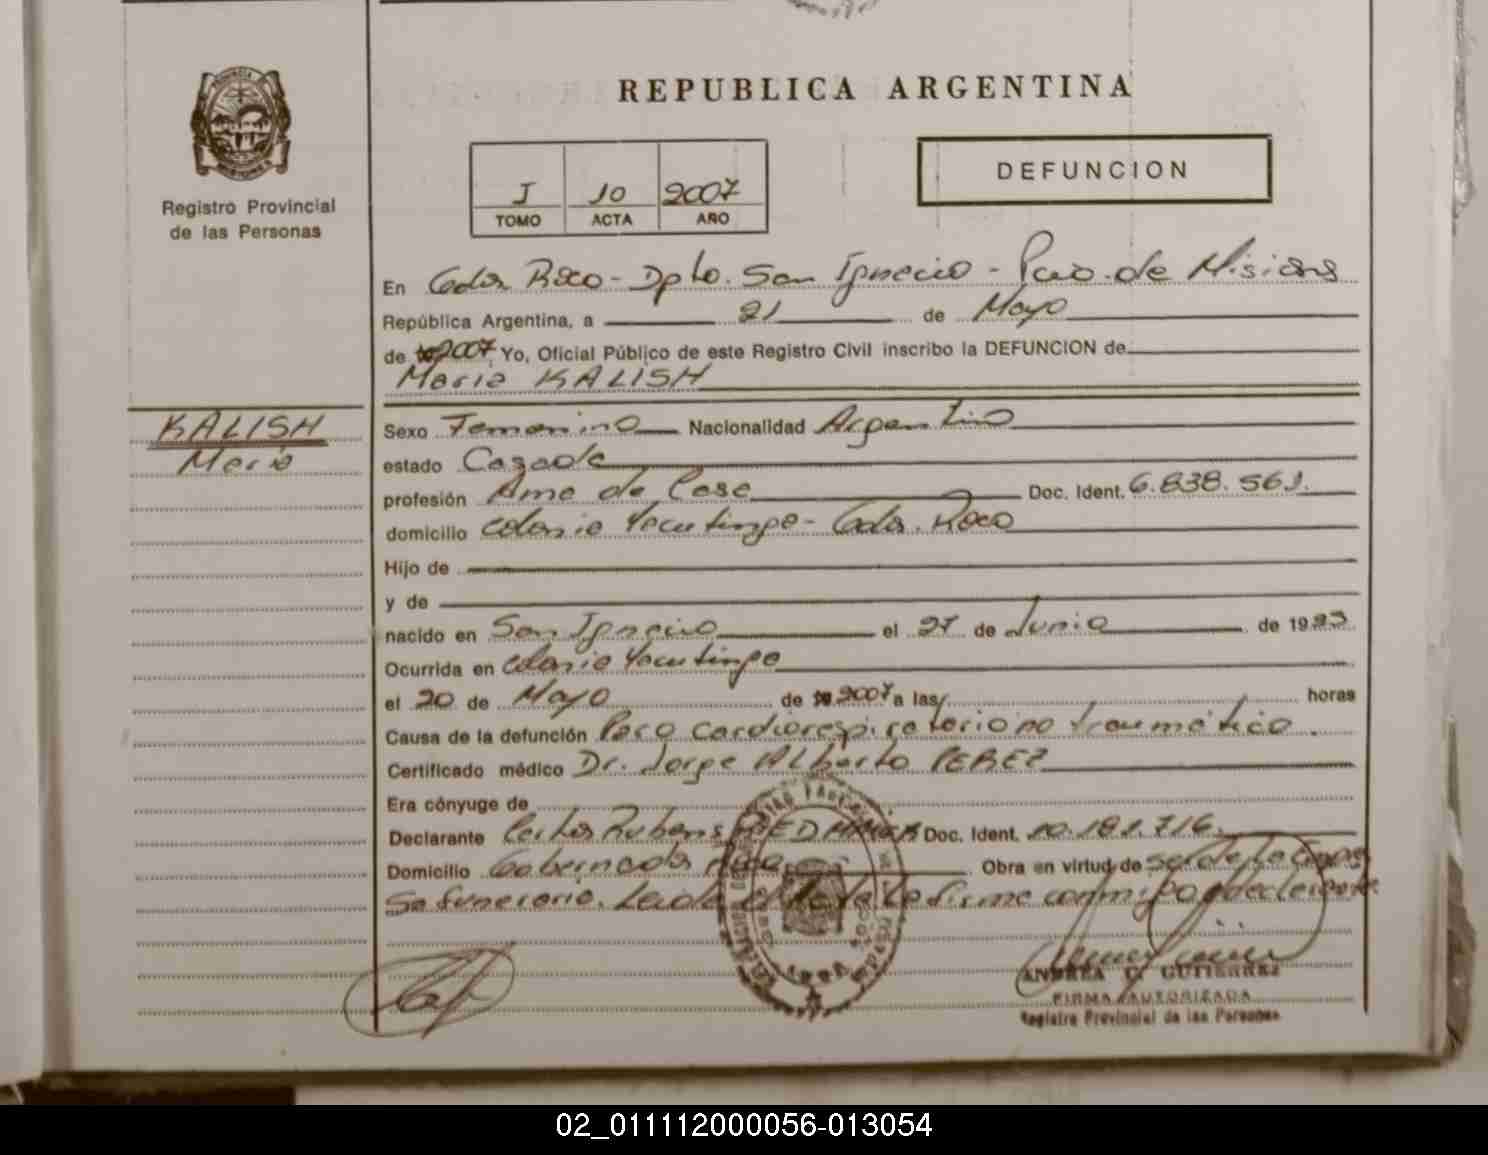 REPUBLICA ARGENTINA
Registro Provincial
de las Personas
I 10 2007
TOMO ACTA AÑO
DEFUNCION
En Gdor. Roca - Dpto. San Ignacio - Pcia. de Misiones
República Argentina, a 21 de Mayo
de 2007 Yo, Oficial Público de este Registro Civil inscribo la DEFUNCION de
Maria KALISH
KALISH
Maria
Sexo Femenino Nacionalidad Argentina
estado Casada
profesión Ama de Casa Doc. Ident. 6.838.561.
domicilio Colonia Yacutinga - Gdor. Roca
Hijo de
y de
nacido en San Ignacio el 27 de Junio de 19
Ocurrida en Colonia Yacutinga
el 20 de Mayo de 2007 a las horas
Causa de la defunción Paro cardiorespiratorio no traumático.
Certificado médico Dr. Jorge Alberto PEREZ
Era cónyuge de
Declarante Carlos Rubens Doc. Ident. 10.181.716.
Domicilio Gobernador Roca Obra en virtud de ser de la
sa funeraria. Leida el acta la firma conmigo el declarante
ANDREA C. GUTIERREZ
FIRMA AUTORIZADA
Registro Provincial de las Personas
02_011112000056-013054